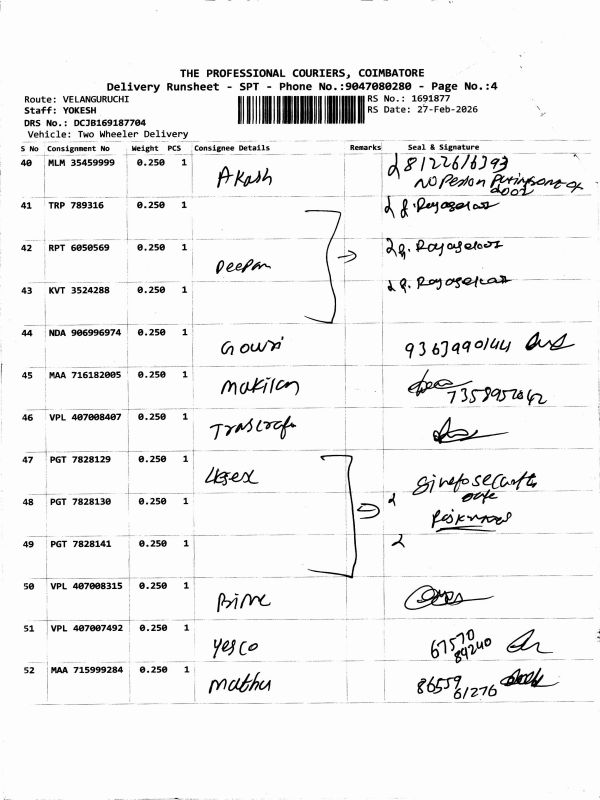 THE PROFESSIONAL COURIERS, COIMBATORE
Delivery Runsheet - SPT - Phone No.:9047080280 - Page No.:4
Route: VELANGURUCHI
Staff: YOKESH
DRS No.: DCJB169187704
Vehicle: Two Wheeler Delivery
RS No.: 1691877
RS Date: 27-Feb-2026
S No Consignment No Weight PCS Consignee Details Remarks Seal & Signature
40 MLM 35459999 0.250 1 Akash 8122616393
NO Person
door
41 TRP 789316 0.250 1
42 RPT 6050569 0.250 1 Deepan
43 KVT 3524288 0.250 1
44 NDA 906996974 0.250 1 Gowri 9363990144
45 MAA 716182005 0.250 1 Makilan
46 VPL 407008407 0.250 1
47 PGT 7828129 0.250 1
48 PGT 7828130 0.250 1
49 PGT 7828141 0.250 1
50 VPL 407008315 0.250 1
51 VPL 407007492 0.250 1 Yesco 67570
89240
52 MAA 715999284 0.250 1 Mathu 86559
61276